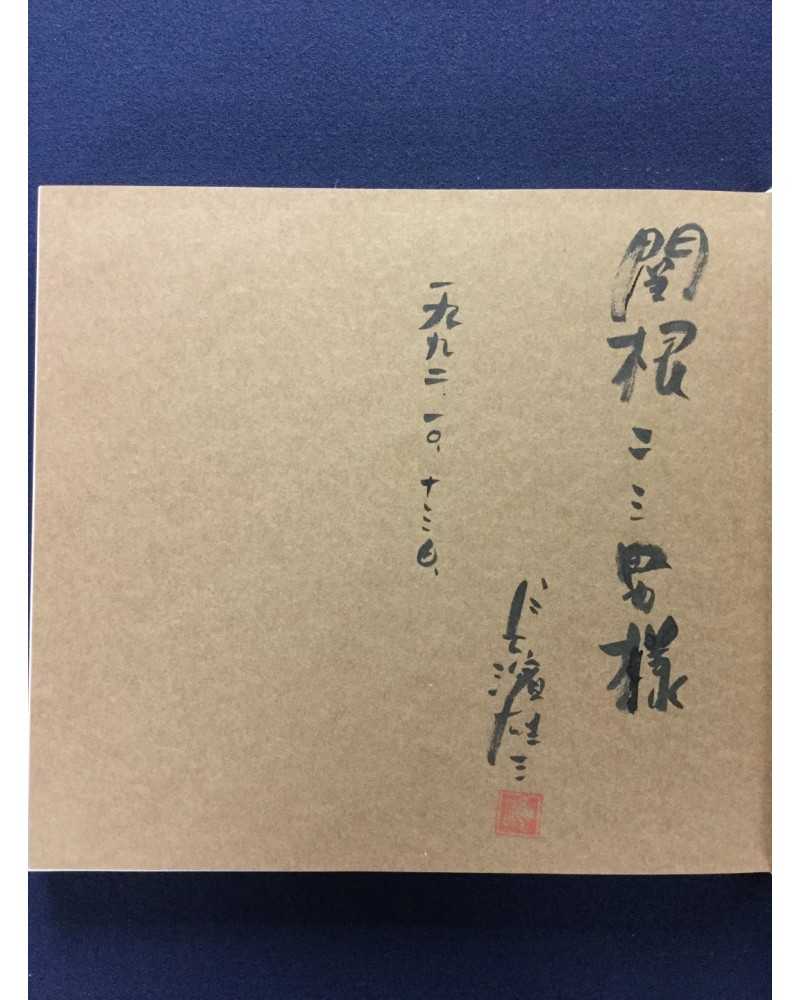 関根二三男様
仁七濱雄三
一九九二.一〇.十三日.